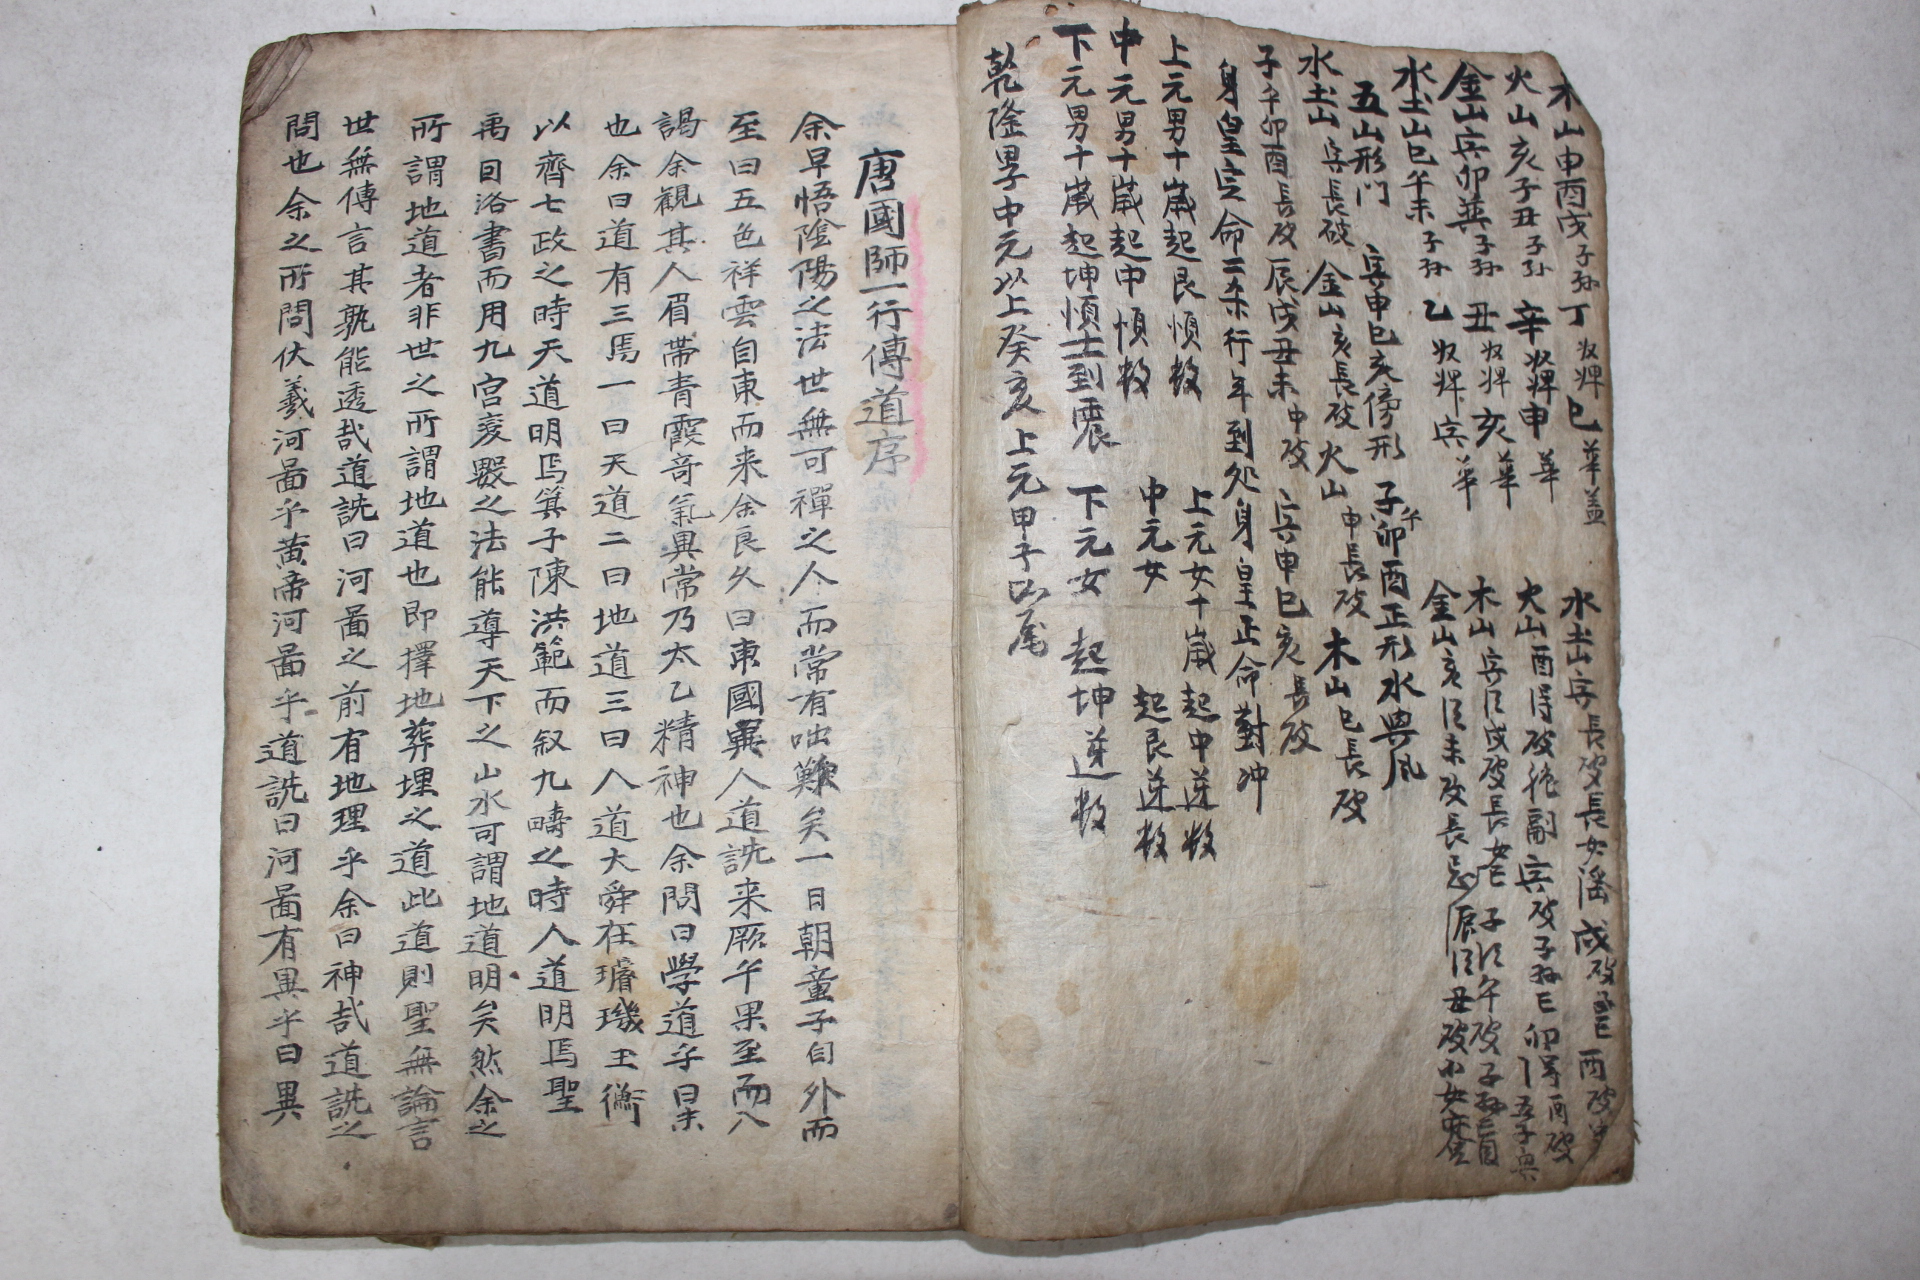 木山申酉戌子孫 丁 巳 華盖
火山亥子丑子孫 辛 申 華
金山寅卯 子孫 丑 亥 華
水土山巳午未子孫 乙 寅 華
五山形門 寅申巳亥傍形 子午卯酉正形水典風
水土山 長破 金山亥長破 火山申長破 木山巳長破
子午卯酉長破 辰戌丑未中破 寅申巳亥長破
身皇定命二条行年到処身皇正命對冲
上元男十歳起艮順数 上元女十歳起中逆数
中元男十歳起中順数 中元女 起艮逆数
下元男十歳起坤順 到震 下元女 起坤逆数
乾隆 中元以上癸亥 上元甲子以尾
水土山 長破長女淫 戌破 酉破
火山酉得破 寅破子孫亡 卯 酉破
木山 戌破長 子 午破子孫盲
金山亥 未破長 辰 丑破小女
唐國師一行傳道序
余早悟陰陽之法世無可禪之人而常有咄歎矣一日朝童子自外而
至曰五色祥雲自東而来余良久曰東國異人道詵来厥午果至而入
謁余觀其人眉帶青霞奇氣異常乃太乙精神也余問曰學道乎曰未
也余曰道有三焉一曰天道二曰地道三曰人道大舜在璿璣玉衡
以齊七政之時天道明焉箕子陳洪範而叙九疇之時人道明焉聖
禹因洛書而用九宮変數之法能導天下之山水可謂地道明矣然余之
所謂地道者非世之所謂地道也即擇地葬埋之道此道則聖無論言
世無傳言其孰能透哉道詵曰河畵之前有地理乎余曰神哉道詵之
問也余之所問伏羲河畵乎黄帝河畵乎道詵曰河畵有異乎曰異